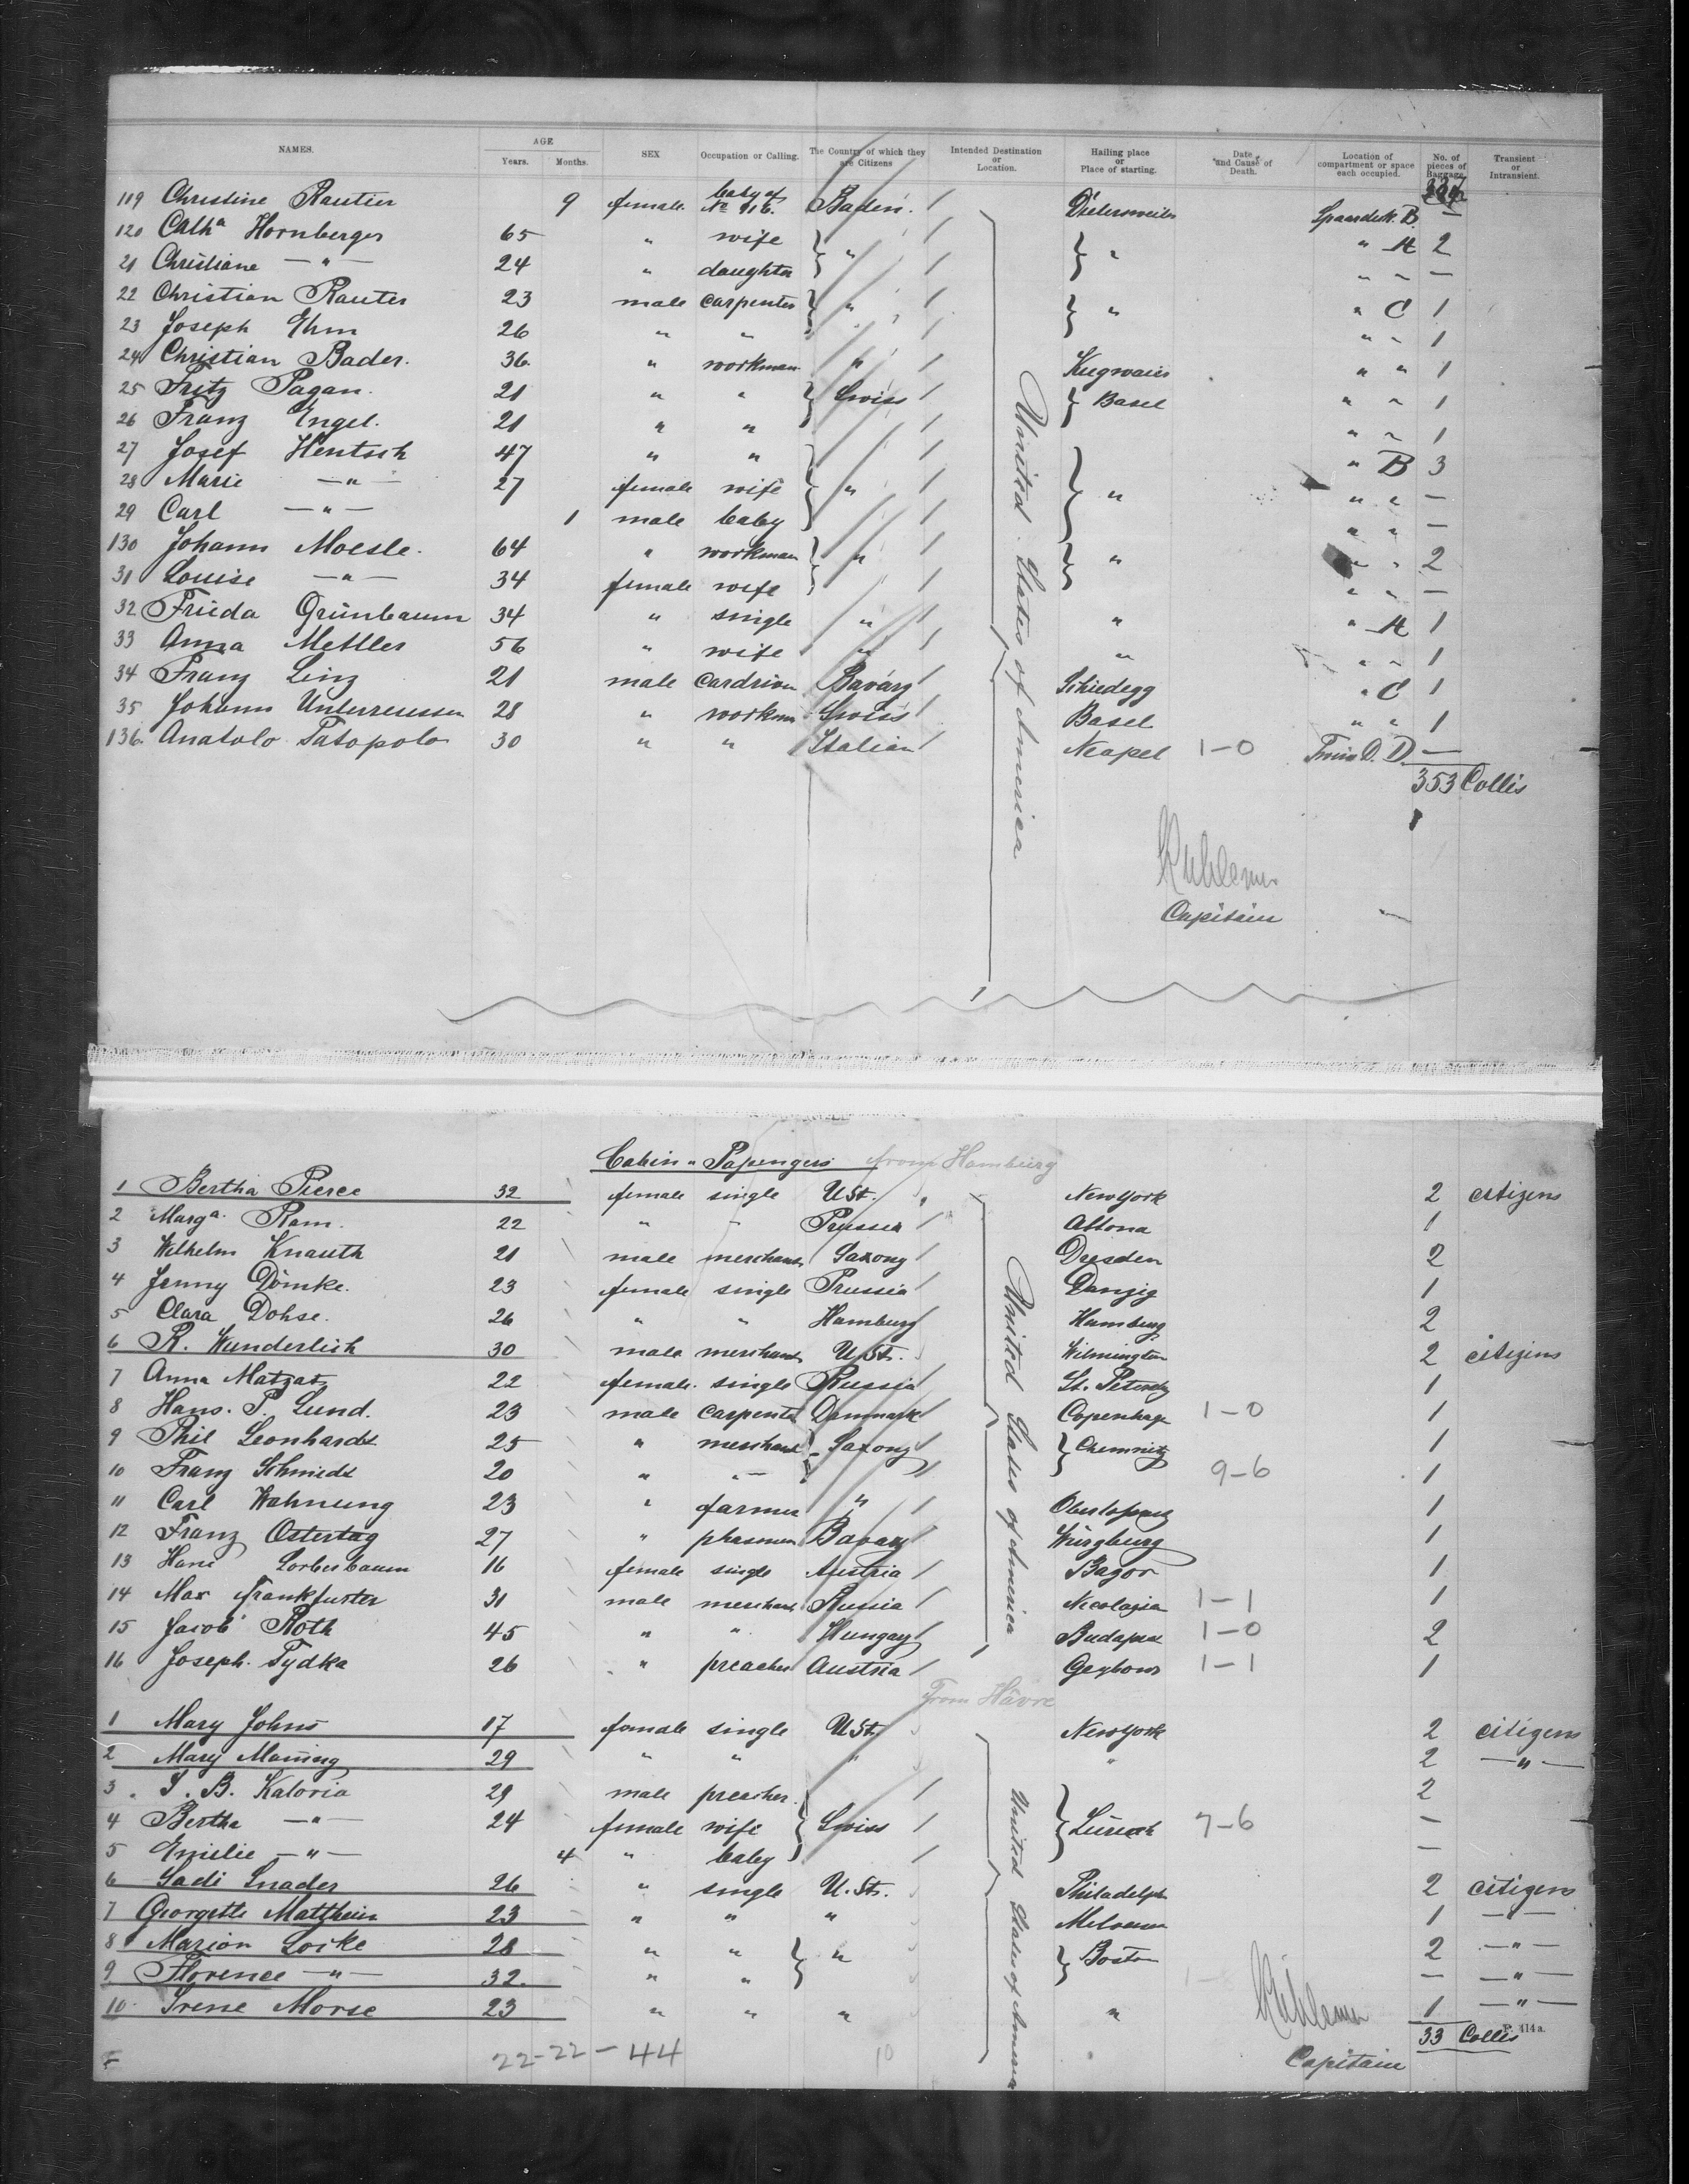 NAMES. AGE Years. Months. SEX Occupation or Calling. The Country of which they are Citizens Intended Destination or Location. Hailing place or Place of starting. Date and Cause of Death. Location of compartment or space each occupied. No. of pieces of Baggage Transient or Intransient.
119 Christine Rautter 9 female baby of No 116. Baden. —
120 Cath a Hornberger 65 " wife " " " H 2
21 Christiane — " — 24 " daughter " " —
22 Christian Rauter 23 male carpenter " " " C 1
23 Joseph Ehm 26 " " " " 1
24 Christian Bader. 36. " workman " " " 1
25 Fritz Pagan. 21 " " Swiss Basel " " 1
26 Franz Engel. 21 " " " " 1
27 Josef Hentsch 47 " " " B 3
28 Marie — " — 27 female wife " " " " —
29 Carl — " — 1 male baby " " —
130 Johann Moesle. 64 " workman " " " " 2
31 Louise — " — 34 female wife " " —
32 Frieda Grünbaum 34 " single " " " H 1
33 Anna Mettler 56 " wife " " " " 1
34 Franz Linz 21 male Bavary " C 1
35 Johann 28 " Swiss Basel " " 1
136. Anatolo Patopolo 30 " " Italian Neapel 1-0 D. —
353 Collis
Capitain
United States of America
Cabin - Passengers from Hamburg
1 Bertha Pierce 32 female single USt. New York 2 citizens
2 Marg a. Ram. 22 " " Prussia Altona 1
3 Wilhelm Knauth 21 male merchant Saxony Dresden 2
4 Jenny Dömke. 23 female single Prussia Danzig 1
5 Clara Dohse. 26 " " Hamburg Hamburg 2
6 R. Wunderlich 30 male merchant U.St. Wilmington 2 citizens
7 Anna Matzat 22 female. single Russia 1
8 Hans. P. Lund. 23 male carpenter Danmark Copenhage 1-0 1
9 Phil Leonhardt 25 " merchant Saxony Chemnitz 1
10 Franz Schmidt 20 " " — 9-6 1
11 Carl Wahnung 23 " farmer " 1
12 Franz Ostertag 27 " Bavary Würzburg 1
13 16 female single Austria 1
14 Max Frankfurter 31 male merchant Russia 1-1 1
15 Jacob Roth 45 " " Hungary Budapest 1-0 2
16 Joseph. Tydka 26 " preacher Austria 1-1 1
United States of America
From Hâvre
1 Mary Johns 17 female single USt. New York 2 citizens
2 Mary Maning 29 " " " " 2 — " —
3 29 male preacher. 2
4 Bertha — " — 24 female wife Swiss Zürich 7-6 —
5 Emilie — " — 4 " baby —
6 Sadi Snader 26 " single U.St. Philadelph 2 citizens
7 Georgette 23 " " " 1 — " —
8 Marion Locke 28 " " " Boston 2 — " —
9 Florence — " — 32. " " — — " —
10 Irene Morse 23 " " " " 1 — " —
United States of America
33 Collis
F. 414a.
22-22-44 10
Capitain